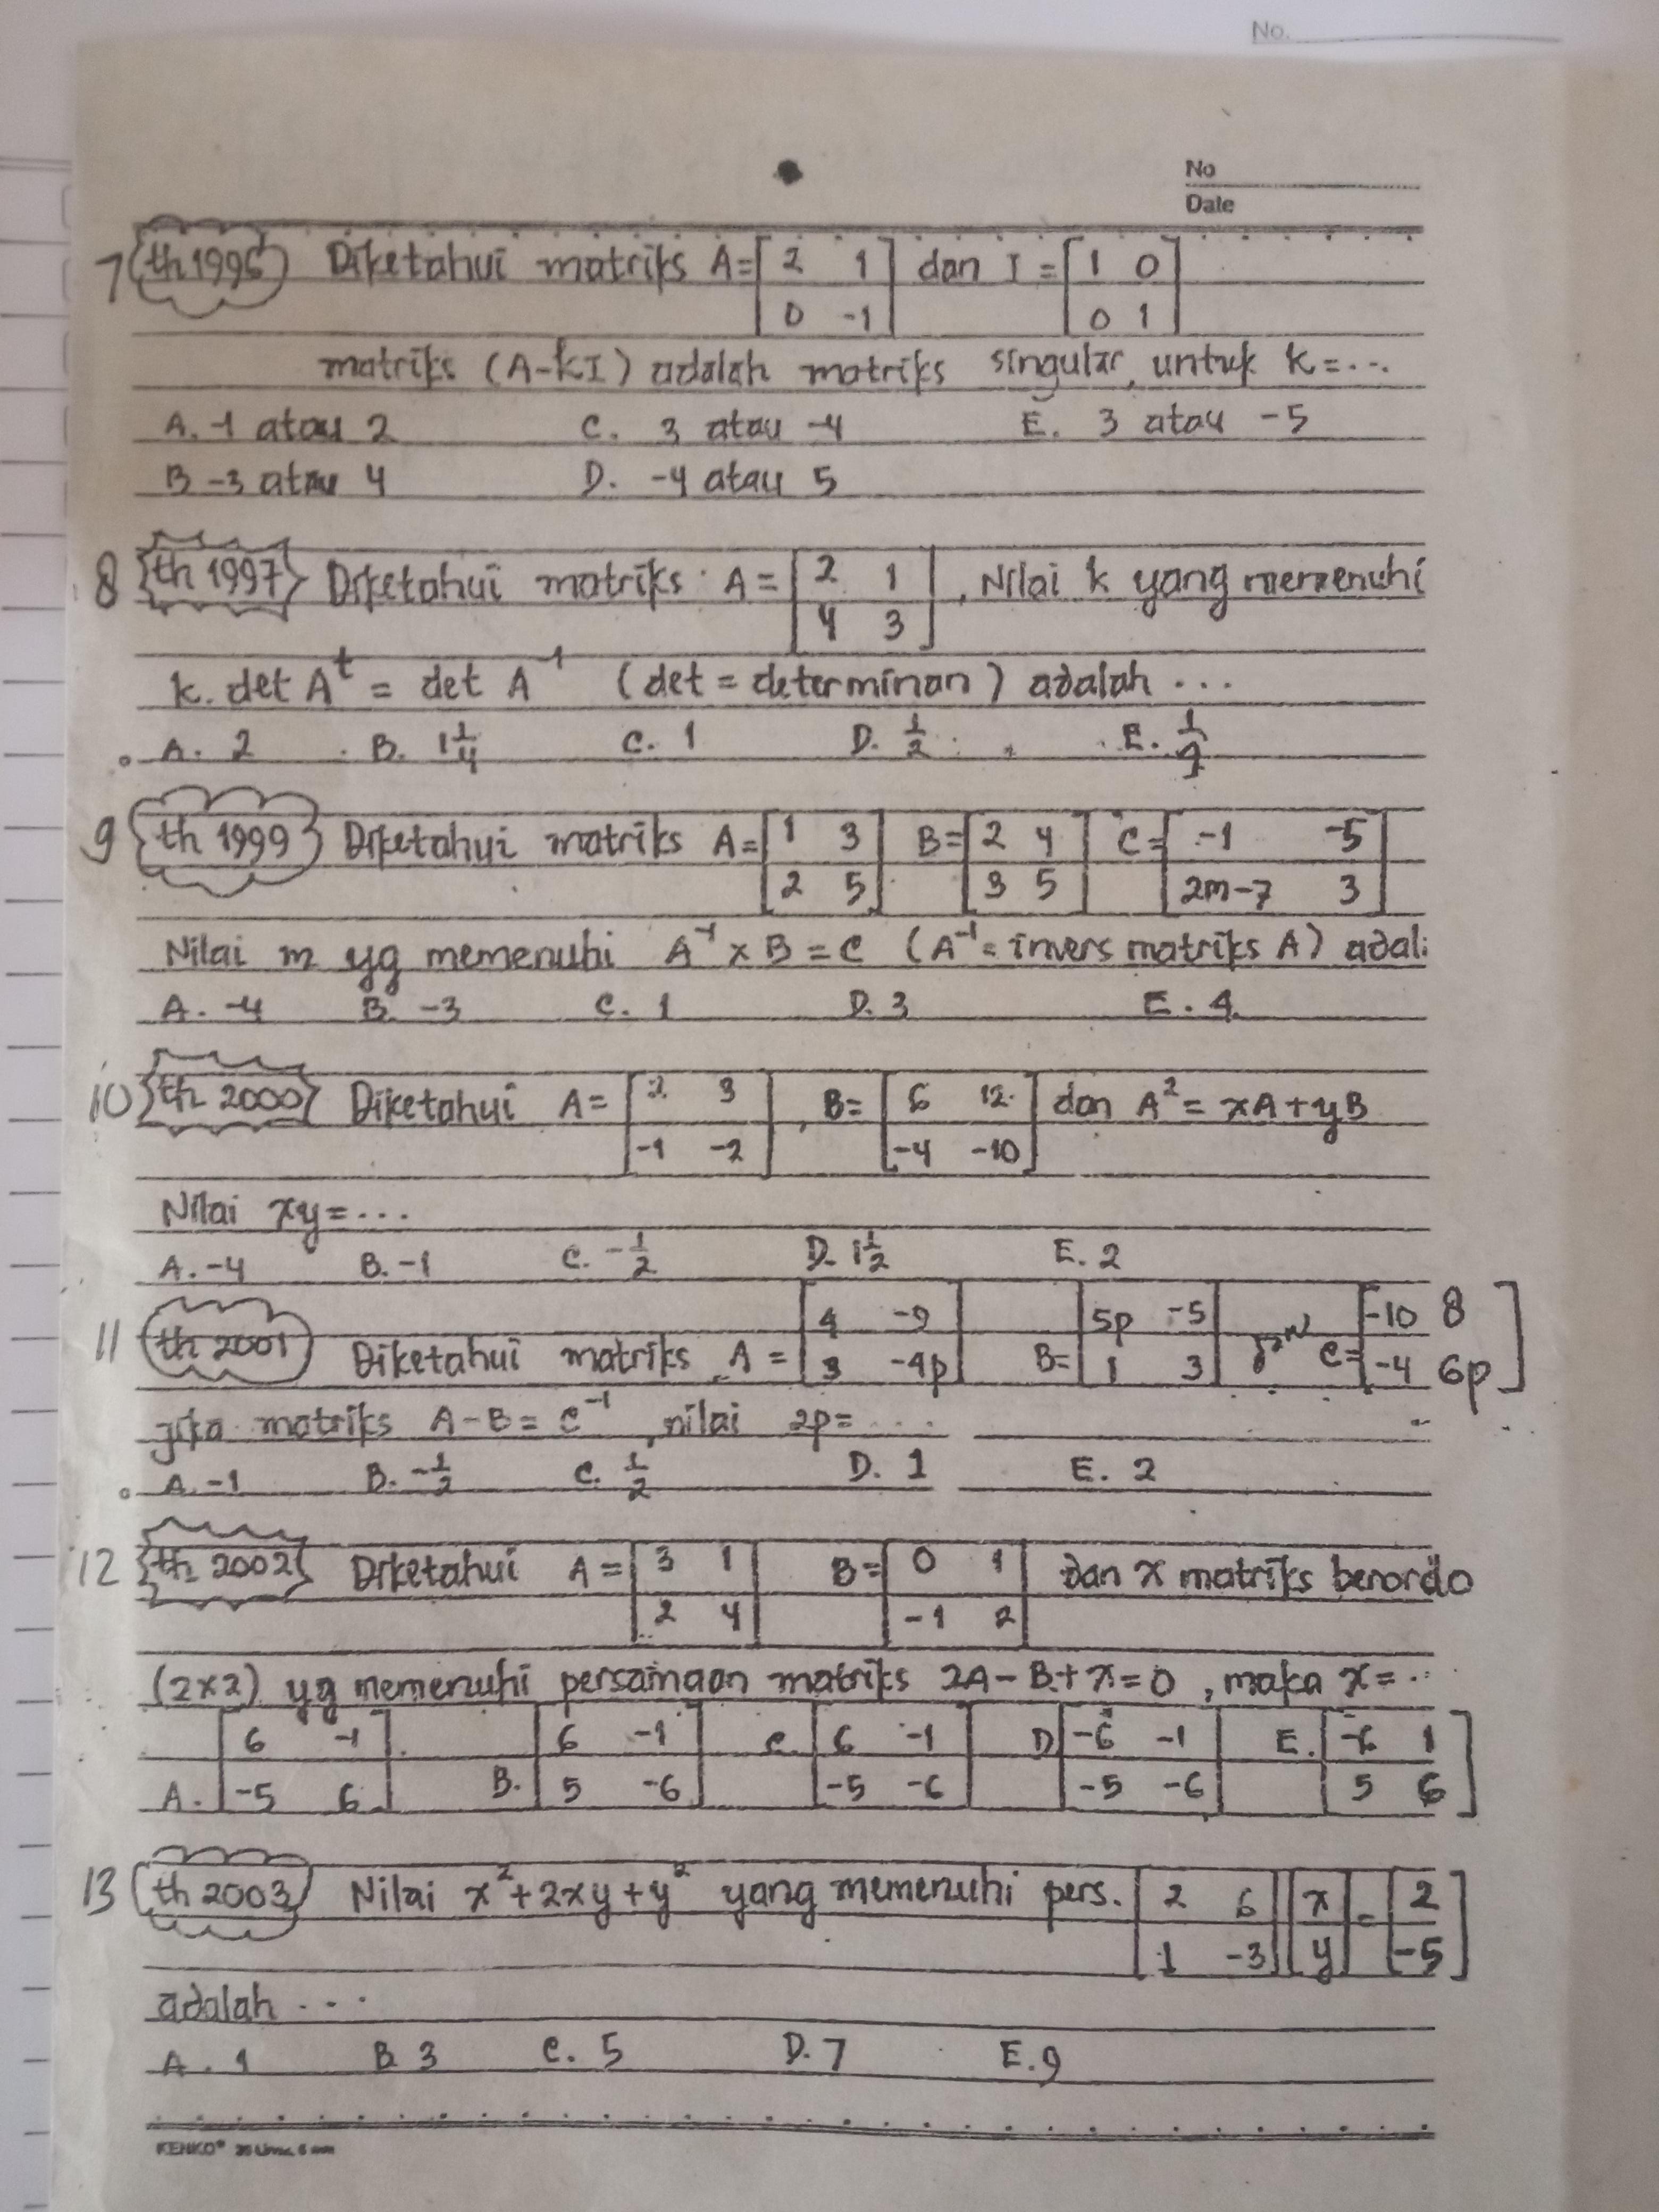 No.
No
Date
7 th 1996 Diketahui matriks A = [2 1 dan I = [1 0
0 -1] 0 1]
matriks (A-kI) adalah matriks singular, untuk k = ...
A. -1 atau 2 C. 3 atau -4 E. 3 atau -5
B -3 atau 4 D. -4 atau 5
8 th 1997 Diketahui matriks A = [2 1 , Nilai k yang memenuhi
4 3]
k. det A^t = det A^-1 (det = determinan) adalah ...
A. 2 B. 1 1/4 C. 1 D. 1/2 E. 1/4
9 th 1999 Diketahui matriks A = [1 3 B = [2 4 C = [-1 -5
2 5] 3 5] 2m-7 3]
Nilai m yg memenuhi A^-1 x B = C (A^-1 = invers matriks A) adal:
A. -4 B. -3 C. 1 D. 3 E. 4
10 th 2000 Diketahui A = [2 3 , B = [6 12 dan A² = xA + yB
-1 -2] -4 -10]
Nilai xy = ...
A. -4 B. -1 C. -1/2 D. 1 1/2 E. 2
[4 -9 [5p -5 [-10 8
11 th 2001 Diketahui matriks A = 3 -4p] B = 1 3] C = -4 6p]
jika matriks A-B = C^-1, nilai 2p = ....
A. -1 B. -1/2 C. 1/2 D. 1 E. 2
12 th 2002 Diketahui A = [3 1 B = [0 1 dan x matriks berordo
2 4] -1 2]
(2x2) yg memenuhi persamaan matriks 2A - B + x = 0, maka x = ...
[6 -1 [6 -1 C. [6 -1 D [-6 -1 E. [-6 1
A. -5 6] B. 5 -6] -5 -6] -5 -6] 5 6]
13 th 2003 Nilai x² + 2xy + y² yang memenuhi pers. [2 6 [x = [2
1 -3] y] -5]
adalah ...
A. 1 B 3 C. 5 D. 7 E. 9
KENKO®